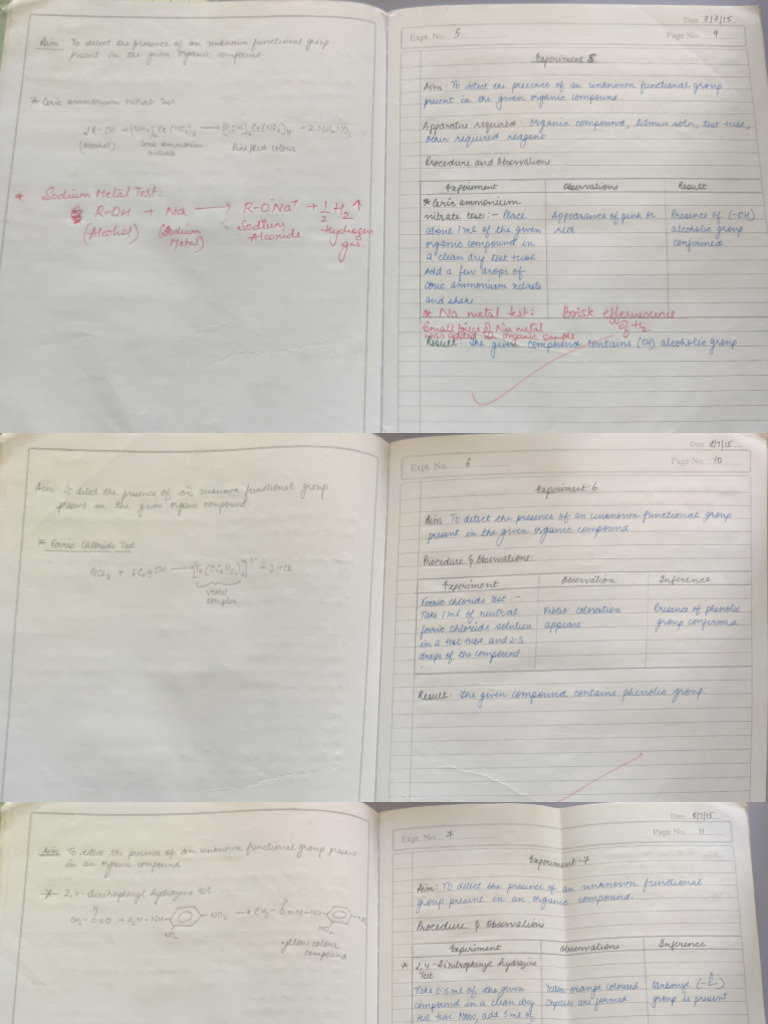 Aim: To detect the presence of an unknown functional group
present in the given organic compound
* Ceric ammonium nitrate Test
2R-OH + (NH4)2Ce(NO3)6 → (ROH)2Ce(NO3)4 + 2NH4NO3
(Alcohol) Ceric ammonium Pink/Red colour
nitrate
* Sodium Metal Test:
R-OH + Na → R-O⁻Na⁺ + 1/2 H2↑
(Alcohol) (Sodium Sodium Hydrogen
Metal) Alcoxide gas
Date 8/7/15
Expt. No. 5 Page No. 9
Experiment 5
Aim: To detect the presence of an unknown functional group
present in the given organic compound.
Apparatus required: organic compound, litmus soln, test tube,
other required reagent
Procedure and Observations
Experiment Observations Result
* Ceric ammonium
nitrate test:- Place Appearance of pink or Presence of (-OH)
about 1 ml of the given red alcoholic group
organic compound in confirmed
a clean dry test tube
Add a few drops of
ceric ammonium nitrate
and shake
* Na metal test: Brisk effervescence
Small piece of Na metal of H2
was added in organic sample
Result: The given compound contains (OH) alcoholic group
Aim: To detect the presence of an unknown functional group
present in the given organic compound
* Ferric Chloride Test
violet
complex
Date 8/7/15
Expt. No. 6 Page No. 10
Experiment-6
Aim: To detect the presence of an unknown functional group
present in the given organic compound
Procedure & Observations
Experiment Observation Inference
Ferric chloride test:-
Take 1 ml of neutral Violet coloration Presence of phenolic
ferric chloride solution appears group confirmed
in a test tube and 2-3
drops of the compound
Result: The given compound contains phenolic group.
Aim: To detect the presence of an unknown functional group present
in an organic compound
* 2,4-dinitrophenyl hydrazine test
yellow colour
compound
Date 8/7/15
Expt. No. 7 Page No. 11
Experiment-7
Aim: To detect the presence of an unknown functional
group present in an organic compound.
Procedure & Observations
Experiment Observations Inference
* 2,4-Dinitrophenyl hydrazine
Test
Take 0.5 ml of the given Yellow orange coloured Carbonyl
compound in a clean dry crystals are formed group is present
test tube. Now, add 5 ml of